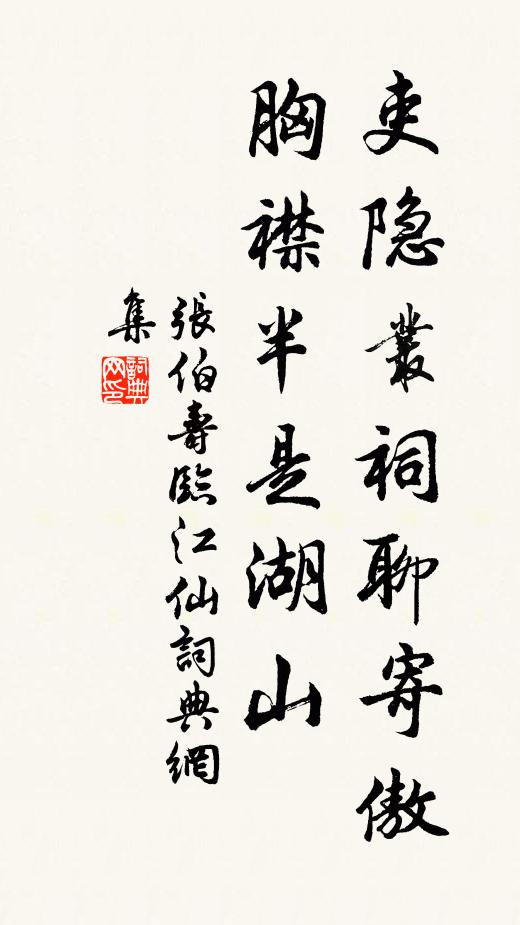 吏隐叢祠聊寄傲
胸襟半是湖山
張伯壽臨江仙詞典網
集
詞典
网印